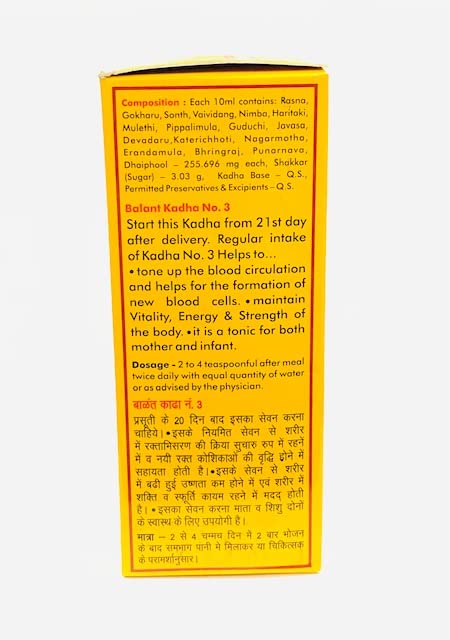 Composition : Each 10ml contains: Rasna,
Gokharu, Sonth, Vaividang, Nimba, Haritaki,
Mulethi, Pippalimula, Guduchi, Javasa,
Devadaru,Katerichhoti, Nagarmotha,
Erandamula, Bhringraj, Punarnava,
Dhaiphool – 255.696 mg each, Shakkar
(Sugar) – 3.03 g, Kadha Base – Q.S.,
Permitted Preservatives & Excipients – Q.S.
Balant Kadha No. 3
Start this Kadha from 21st day
after delivery. Regular intake
of Kadha No. 3 Helps to...
•tone up the blood circulation
and helps for the formation of
new blood cells. •maintain
Vitality, Energy & Strength of
the body. •it is a tonic for both
mother and infant.
Dosage - 2 to 4 teaspoonful after meal
twice daily with equal quantity of water
or as advised by the physician.
बाळंत काढा नं. 3
प्रसूती के 20 दिन बाद इसका सेवन करना
चाहिये।•इसके नियमित सेवन से शरीर
में रक्ताभिसरण की क्रिया सुचारु रुप में रहनें
में व नयी रक्त कोशिकाओं की वृद्धि होने में
सहायता होती है।•इसके सेवन से शरीर
में बढी हुई उष्णता कम होने में एवं शरीर में
शक्ति व स्फूर्ति कायम रहने में मदद होती
है। •इसका सेवन करना माता व शिशु दोनों
के स्वास्थ के लिए उपयोगी है।
मात्रा – 2 से 4 चम्मच दिन मे 2 बार भोजन
के बाद समभाग पानी मे मिलाकर या चिकित्सक
के परामर्शानुसार।